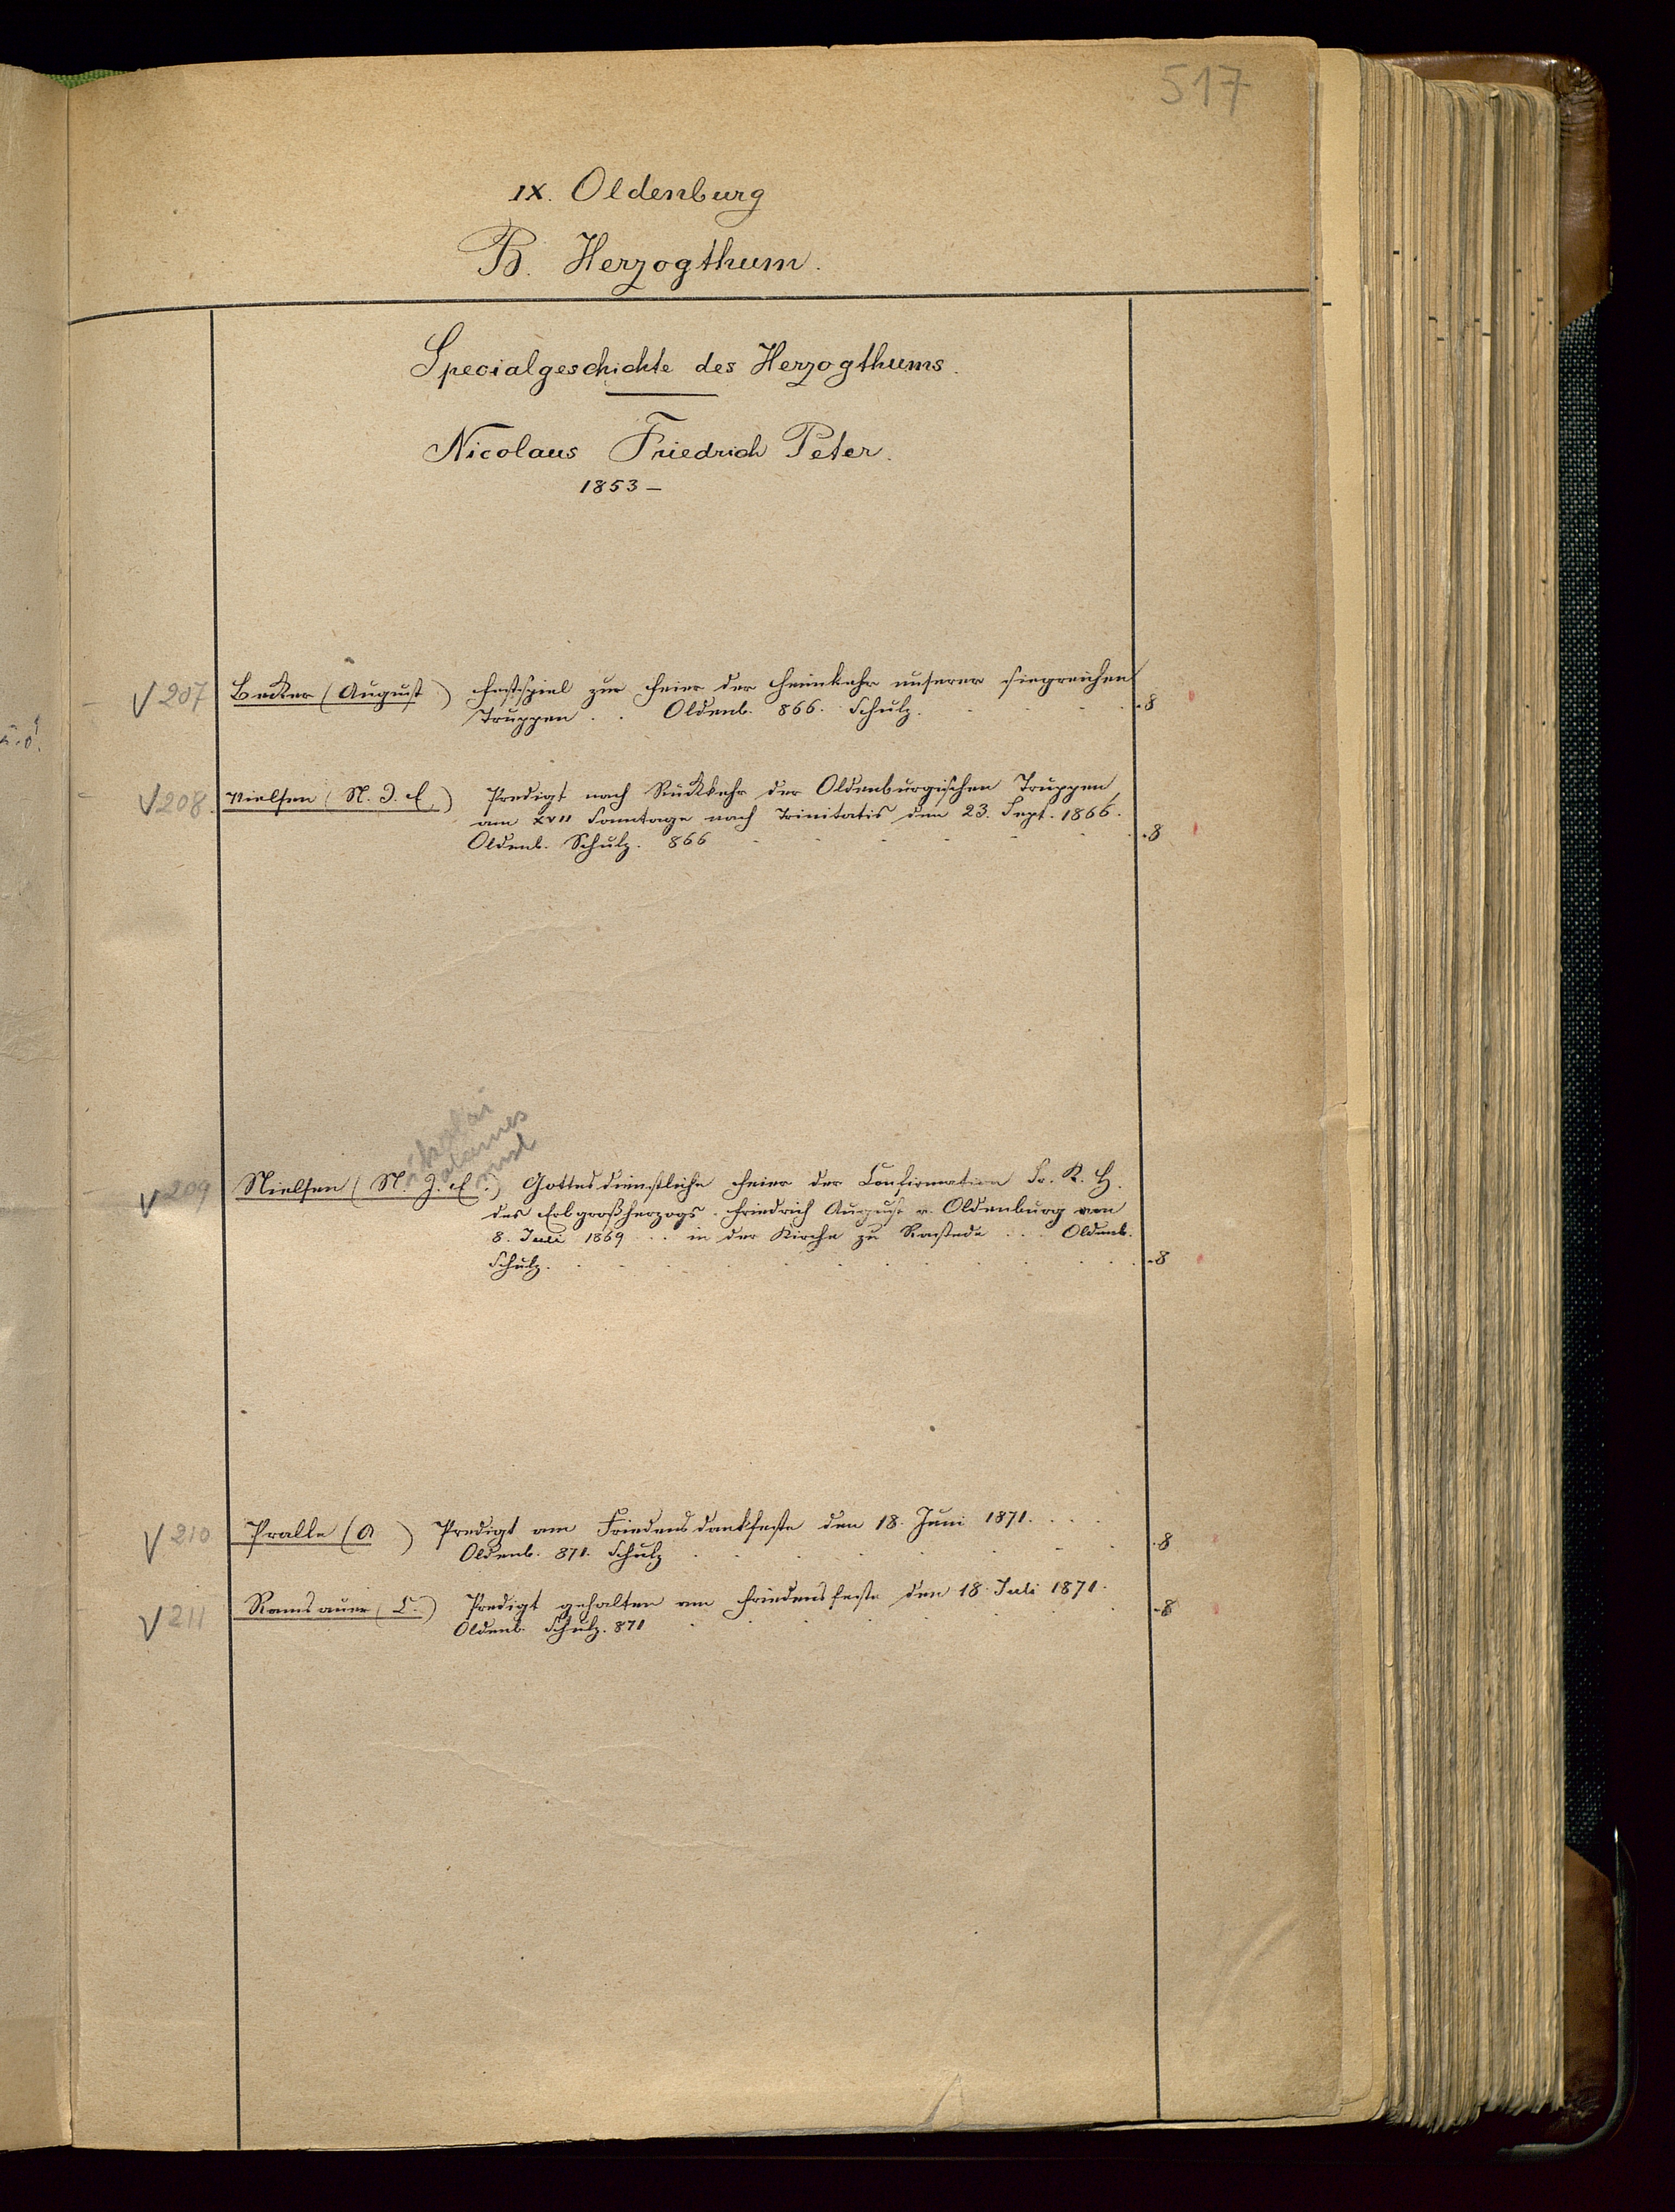 517
IX. Oldenburg
B. Herzogthum.
Specialgeschichte des Herzogthums.
Nicolaus Friedrich Peter.
1853 –
V 207 Becker (August) Festspiel zur Feier der Heimkehr unserer siegreichen
Truppen . . Oldenb. 866. Schulz. . . . . 8
V 208. Nielsen (N. J. E.) Predigt nach Rückkehr der Oldenburgischen Truppen
am XVII Sonntage nach Trinitatis den 23. Sept. 1866.
Oldenb. Schulz. 866 . . . . . . 8
Nikolai
Johannes
Ernst
V 209 Nielsen (N. J. E.) Gottesdienstliche Feier der Confirmation Sr. K. H.
des Erbgroßherzogs Friedrich August v. Oldenburg am
8. Juli 1869 . . . in der Kirche zu Rastede . . . Oldenb.
Schulz. . . . . . . . . . 8
V 210 Pralle (A) Predigt am Friedensdankfeste den 18. Juni 1871. . . .
Oldenb. 871. Schulz . . . . . . . 8
V 211 Ramsauer (C.) Predigt gehalten am Friedensfeste den 18. Juli 1871.
Oldenb. Schulz. 871 . . . . . . . 8